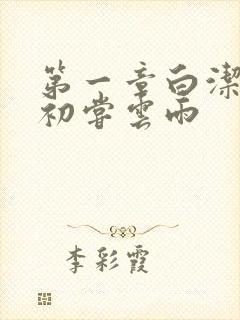 第一章白潔
初嘗雲雨
李彩霞